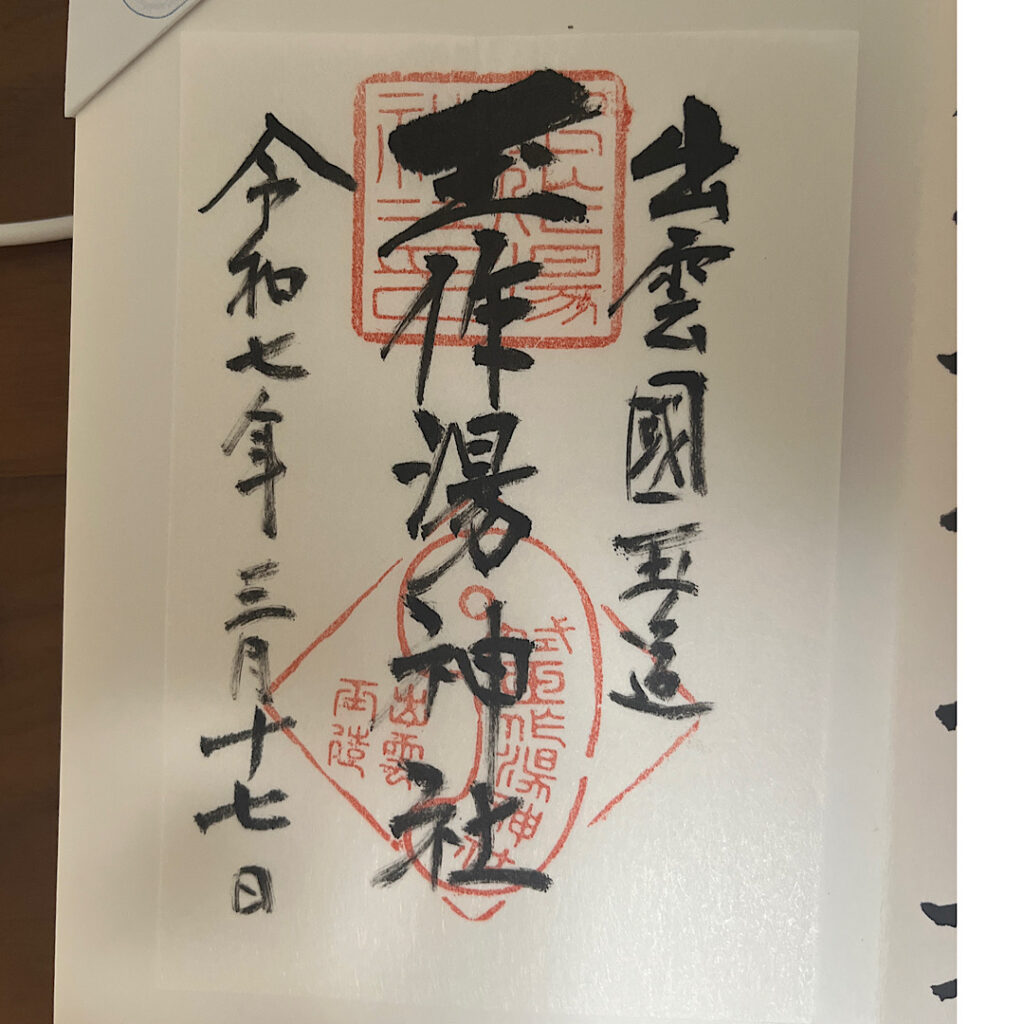 出雲國玉造
玉作湯神社
令和七年三月十七日
式内玉作湯神社
出雲
玉造